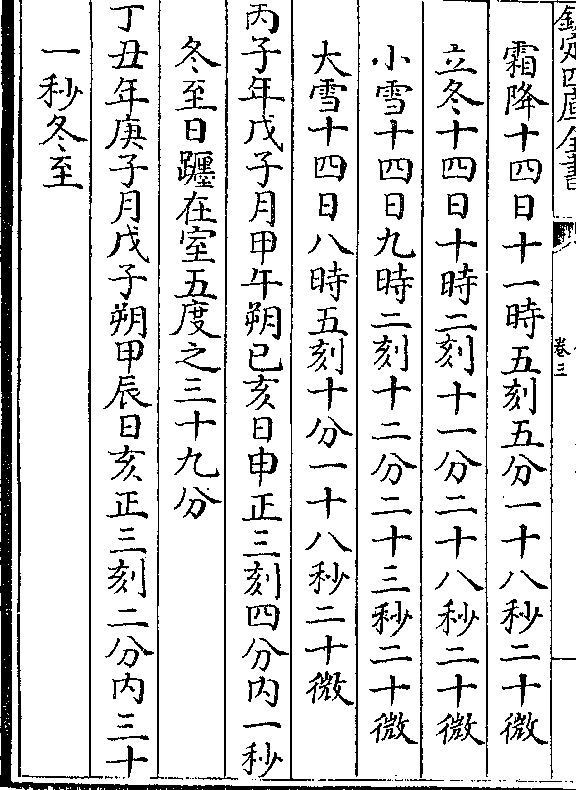 欽定四庫全書
卷三
霜降十四日十一時五刻五分一十八秒二十微
立冬十四日十時二刻十一分二十八秒二十微
小雪十四日九時二刻十二分二十三秒二十微
大雪十四日八時五刻十分一十八秒二十微
丙子年戊子月甲午朔已亥日申正三刻四分内一秒
冬至日躔在室五度之三十九分
丁丑年庚子月戊子朔甲辰日亥正三刻二分内三十
一秒冬至